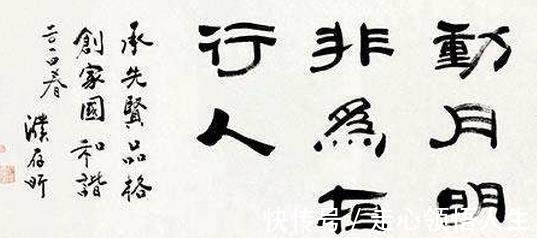 動月明
非為有
行人
承先賢品格
創家國和諧
二〇一四春 濮存昕
快传号/走心领悟人生